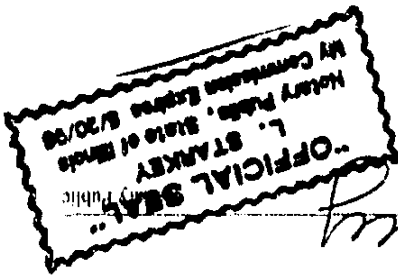 "OFFICIAL SEAL"
L. STARKEY
Notary Public, State of Illinois
My Commission Expires 5/20/98
Public